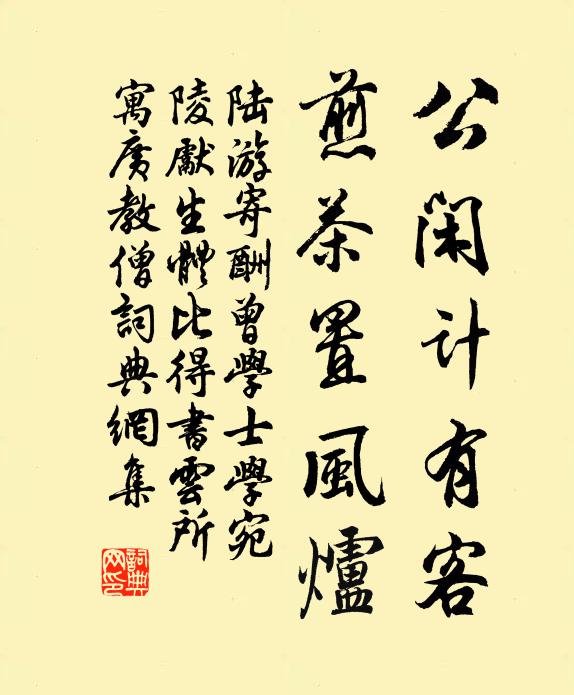 公闲计有客
煎茶置風爐
陆游寄酬曾學士學宛
陵獻生體比得書雲所
寓廣教僧詞典網集
詞典网印